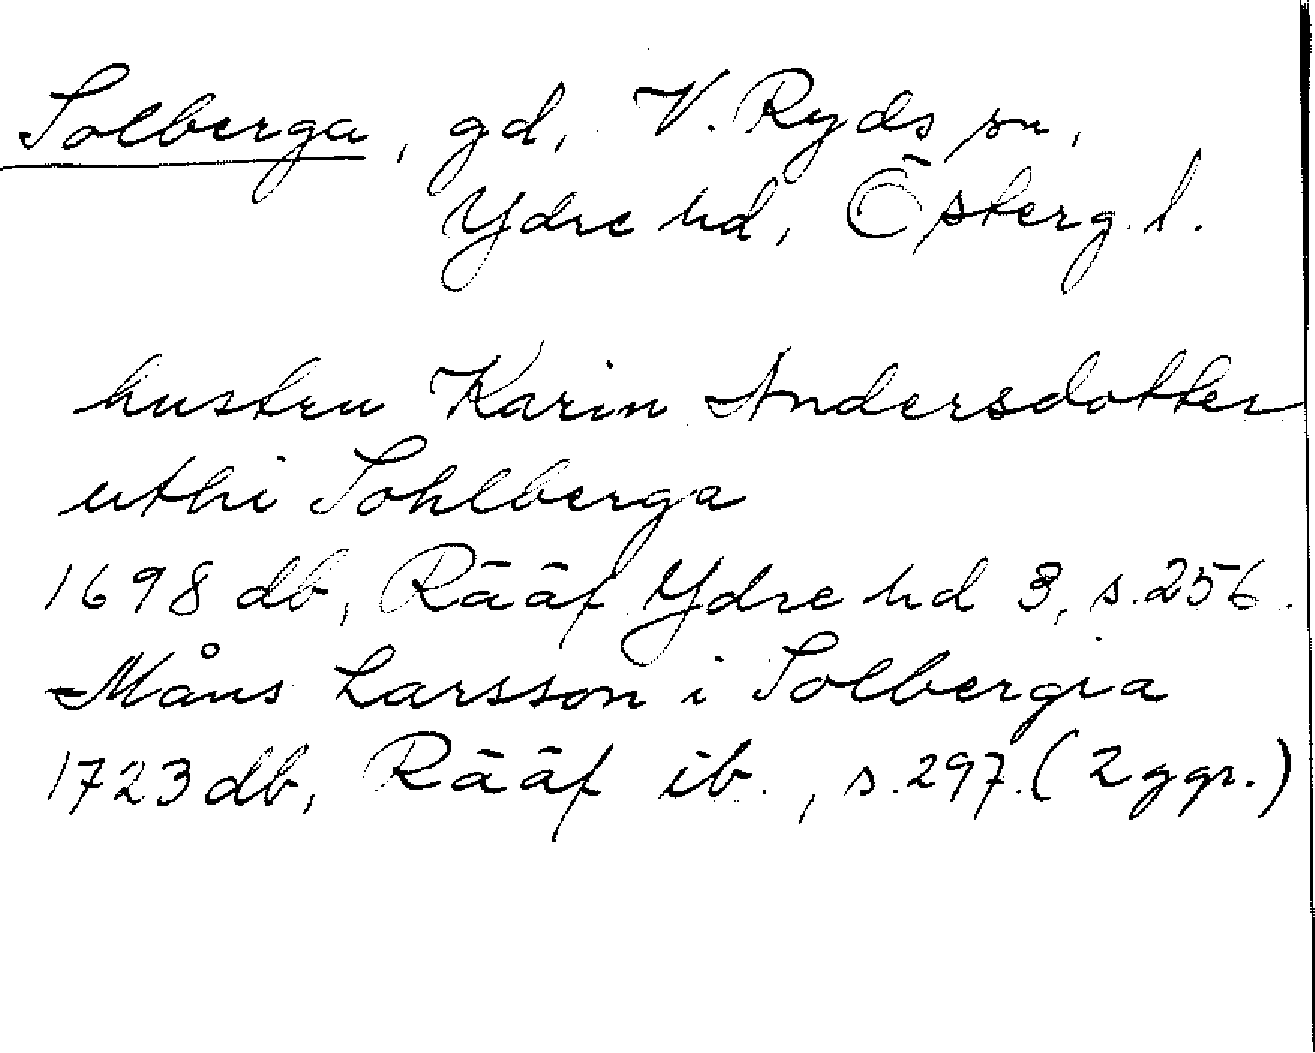 Solberga, gd, V. Ryds sn,
Ydre hd, Österg. l.
hustru Karin Andersdotter
uthi Sohlberga
1698 db, Rääf Ydre hd 3, s. 256.
Måns Larsson i Solberga
1723 db, Rääf ib., s. 297. (2 ggr.)